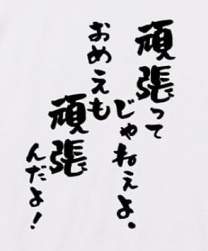 頑張って
じゃねぇよ。
おめえも
頑張
んだよ！